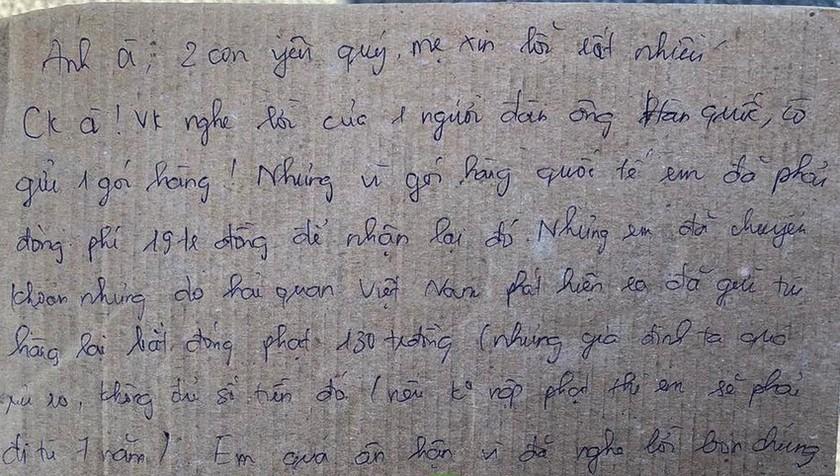 Anh à; 2 con yêu quý, mẹ xin lỗi rất nhiều
Ck à! Vk nghe lời của 1 người đàn ông Hàn quốc, có
gửi 1 gói hàng! Nhưng vì gói hàng quốc tế em đã phải
đóng phí 19tr đồng để nhận lại đó. Nhưng em đã chuyển
khoản nhưng do hải quan Việt Nam phát hiện ra đã gửi từ
hãng lại bắt đóng phạt 130 trđồng (nhưng gia đình ta quá
rủi ro, không đủ số tiền đó (nếu k nộp phạt thì em sẽ phải
đi tù 7 năm). Em quá ân hận vì đã nghe lời bọn chúng